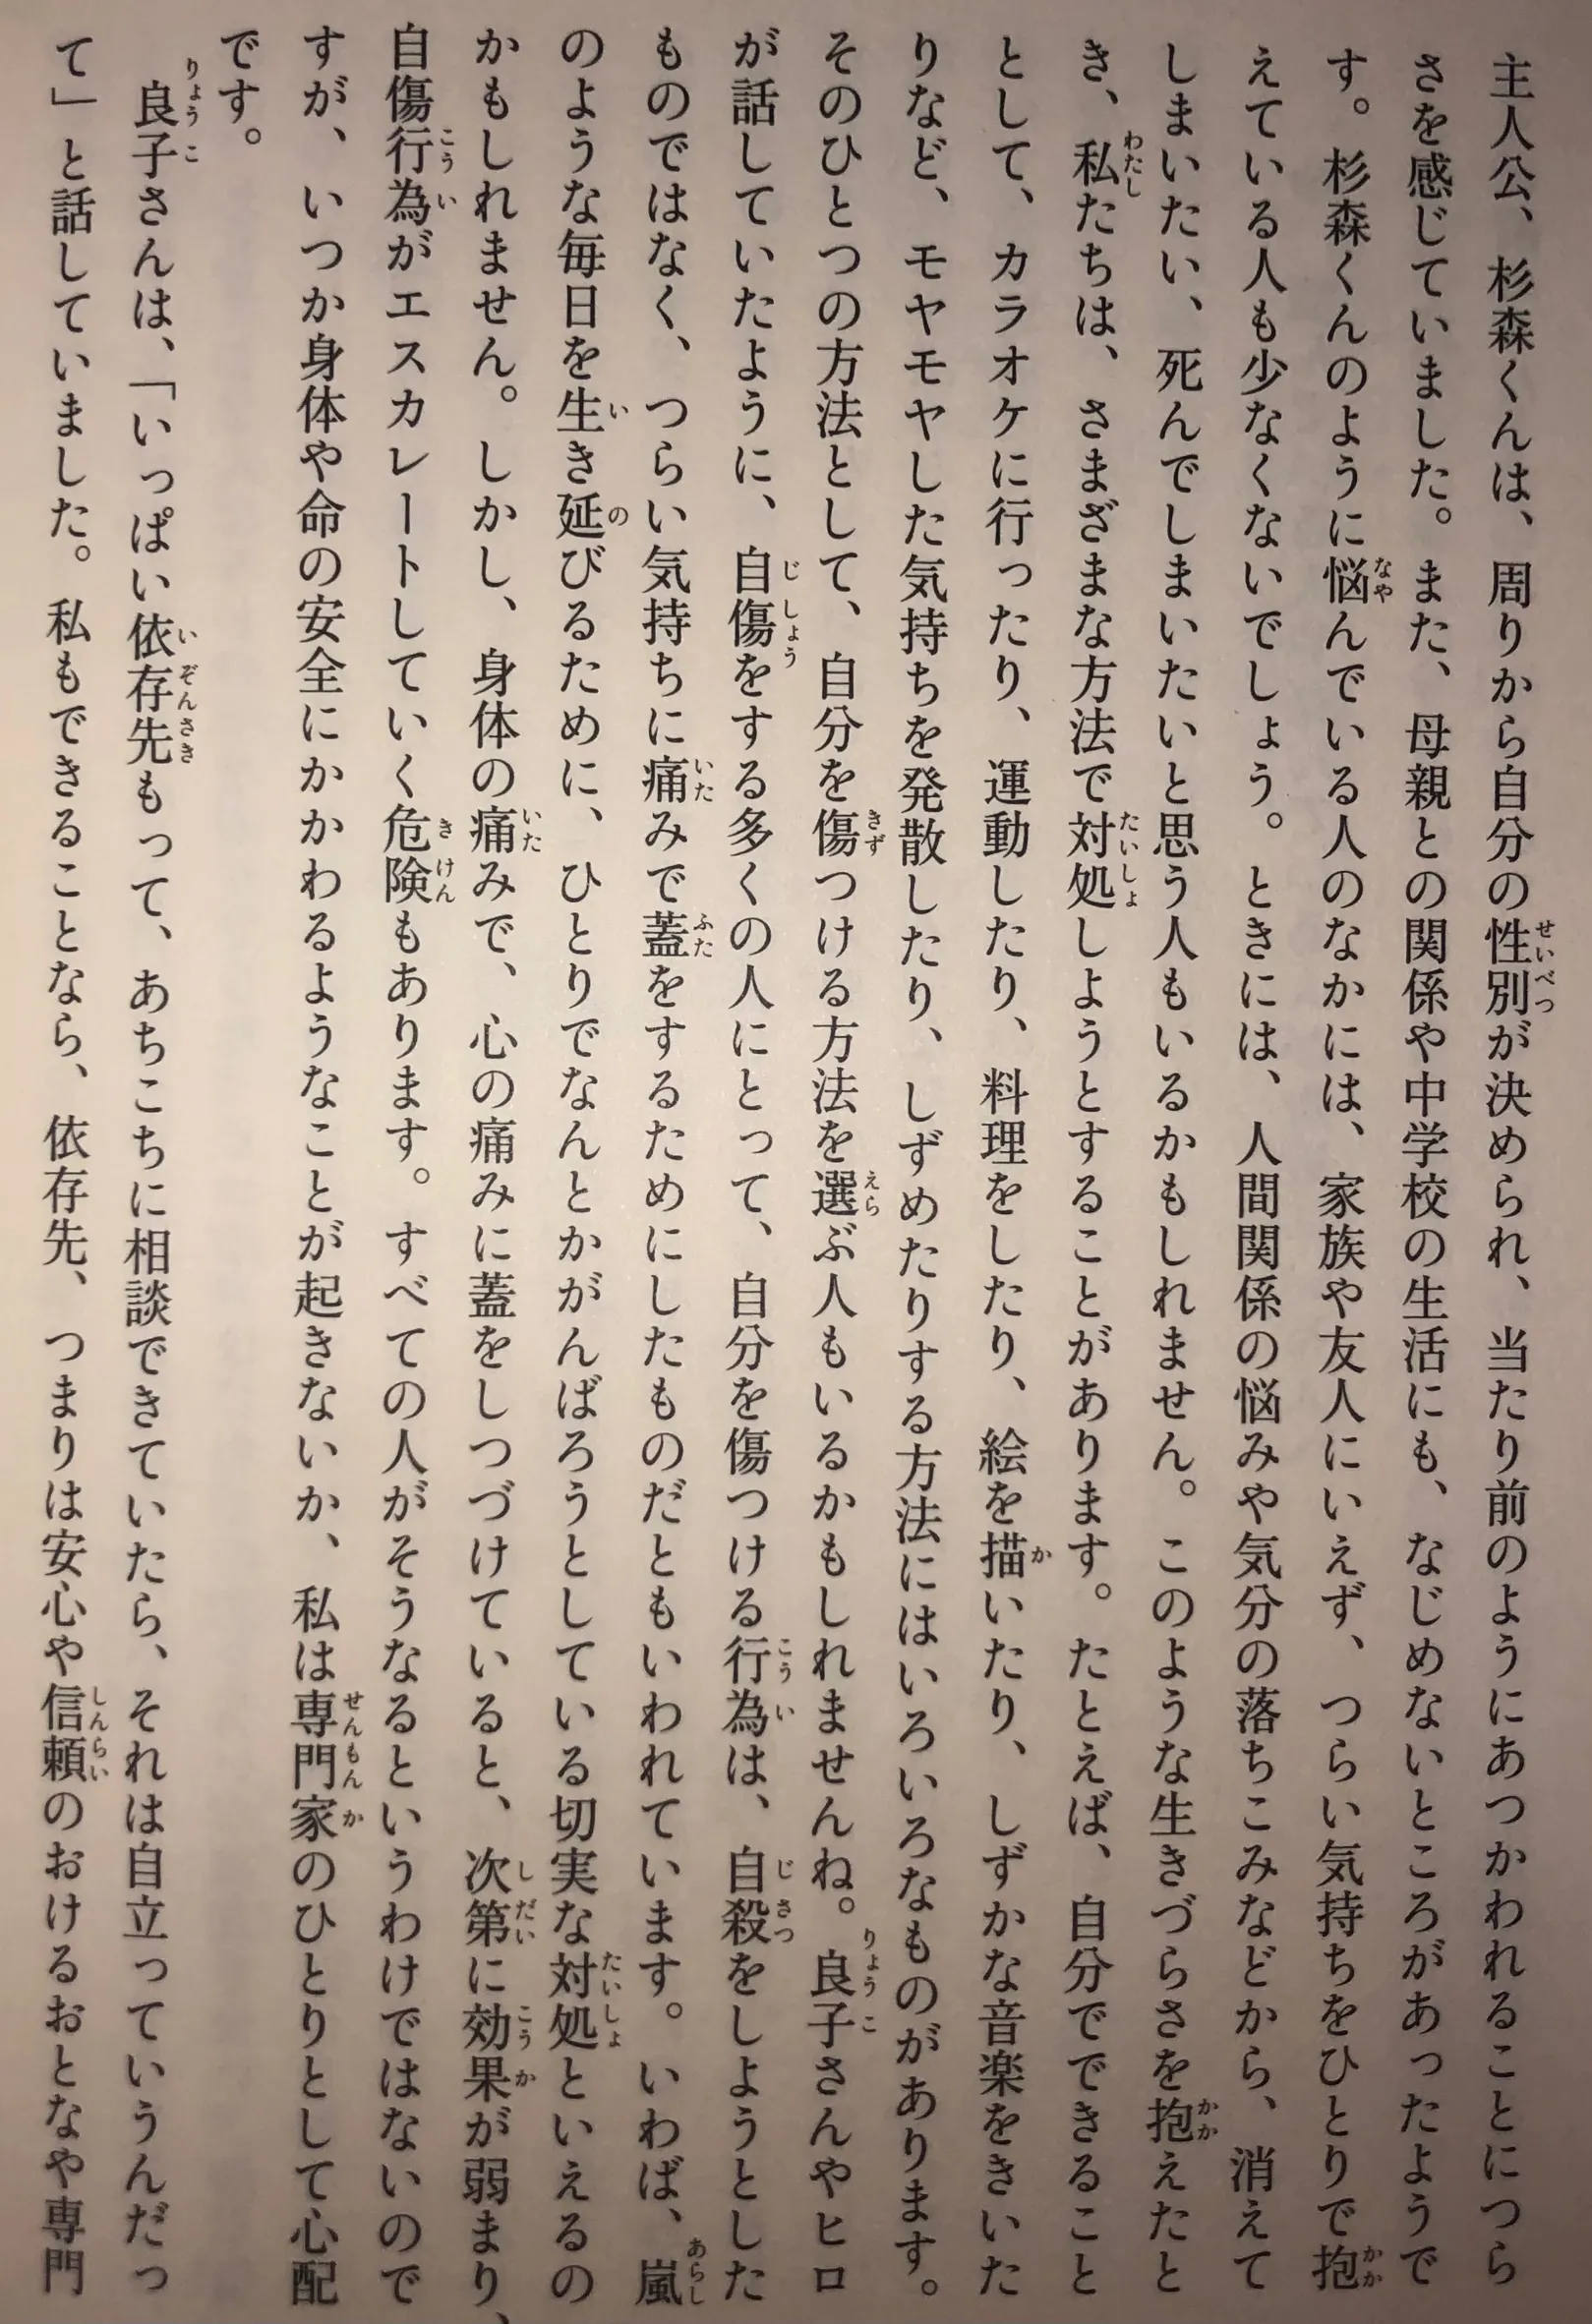 主人公、杉森くんは、周りから自分の性別が決められ、当たり前のようにあつかわれることにつら
さを感じていました。また、母親との関係や中学校の生活にも、なじめないところがあったようで
す。杉森くんのように悩んでいる人のなかには、家族や友人にいえず、つらい気持ちをひとりで抱
えている人も少なくないでしょう。ときには、人間関係の悩みや気分の落ちこみなどから、消えて
しまいたい、死んでしまいたいと思う人もいるかもしれません。このような生きづらさを抱えたと
き、私たちは、さまざまな方法で対処しようとすることがあります。たとえば、自分でできること
として、カラオケに行ったり、運動したり、料理をしたり、絵を描いたり、しずかな音楽をきいた
りなど、モヤモヤした気持ちを発散したり、しずめたりする方法にはいろいろなものがあります。
そのひとつの方法として、自分を傷つける方法を選ぶ人もいるかもしれませんね。良子さんやヒロ
が話していたように、自傷をする多くの人にとって、自分を傷つける行為は、自殺をしようとした
ものではなく、つらい気持ちに痛みで蓋をするためにしたものだともいわれています。いわば、嵐
のような毎日を生き延びるために、ひとりでなんとかがんばろうとしている切実な対処といえるの
かもしれません。しかし、身体の痛みで、心の痛みに蓋をしつづけていると、次第に効果が弱まり、
自傷行為がエスカレートしていく危険もあります。すべての人がそうなるというわけではないので
すが、いつか身体や命の安全にかかわるようなことが起きないか、私は専門家のひとりとして心配
です。
良子さんは、「いっぱい依存先もって、あちこちに相談できていたら、それは自立っていうんだっ
て」と話していました。私もできることなら、依存先、つまりは安心や信頼のおけるおとなや専門